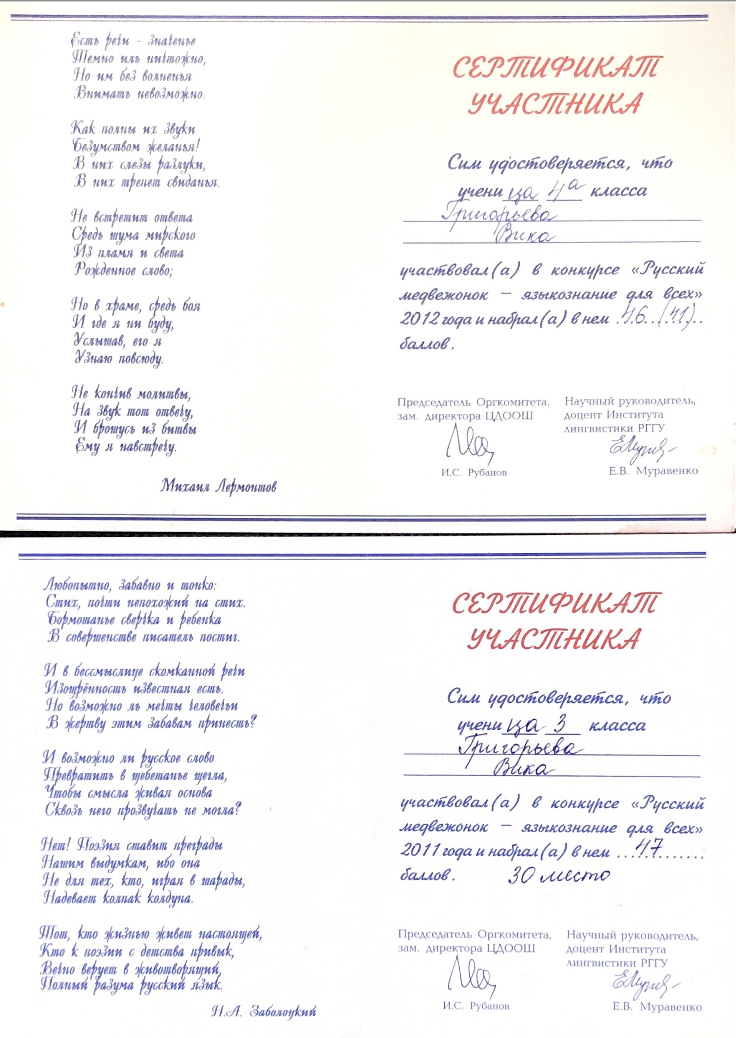 Есть речи - значенье
Темно иль ничтожно,
Но им без волненья
Внимать невозможно.
Как полны их звуки
Безумством желанья!
В них слезы разлуки,
В них трепет свиданья.
Не встретит ответа
Средь шума мирского
Из пламя и света
Рожденное слово;
Но в храме, средь боя
И где я ни буду,
Услышав, его я
Узнаю повсюду.
Не кончив молитвы,
На звук тот отвечу,
И брошусь из битвы
Ему я навстречу.
Михаил Лермонтов
СЕРТИФИКАТ
УЧАСТНИКА
Сим удостоверяется, что
учени ца 4а класса
Григорьева
Вика
участвовал(а) в конкурсе «Русский
медвежонок — языкознание для всех»
2012 года и набрал(а) в нем 46 (41)
баллов.
Председатель Оргкомитета,
зам. директора ЦДООШ
И.С. Рубанов
Научный руководитель,
доцент Института
лингвистики РГГУ
Е.В. Муравенко
Любопытно, забавно и тонко:
Стих, почти непохожий на стих.
Бормотанье сверчка и ребенка
В совершенстве писатель постиг.
И в бессмыслице скомканной речи
Изощрённость известная есть.
Но возможно ль мечты человечьи
В жертву этим забавам принесть?
И возможно ли русское слово
Превратить в щебетанье щегла,
Чтобы смысла живая основа
Сквозь него прозвучать не могла?
Нет! Поэзия ставит преграды
Нашим выдумкам, ибо она
Не для тех, кто, играя в шарады,
Надевает колпак колдуна.
Тот, кто жизнью живет настоящей,
Кто к поэзии с детства привык,
Вечно верует в животворящий,
Полный разума русский язык.
Н.А. Заболоцкий
СЕРТИФИКАТ
УЧАСТНИКА
Сим удостоверяется, что
учени ца 3 класса
Григорьева
Вика
участвовал(а) в конкурсе «Русский
медвежонок — языкознание для всех»
2011 года и набрал(а) в нем 47
баллов. 30 место
Председатель Оргкомитета,
зам. директора ЦДООШ
И.С. Рубанов
Научный руководитель,
доцент Института
лингвистики РГГУ
Е.В. Муравенко